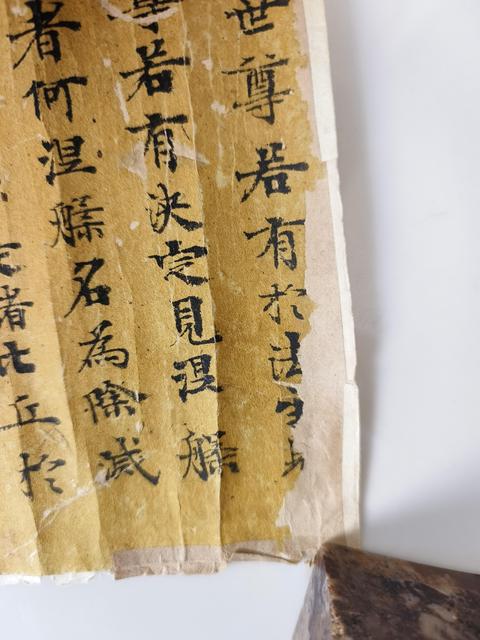 世尊若有於法
尊若有決定見涅槃
者何涅槃名為除滅
比丘於